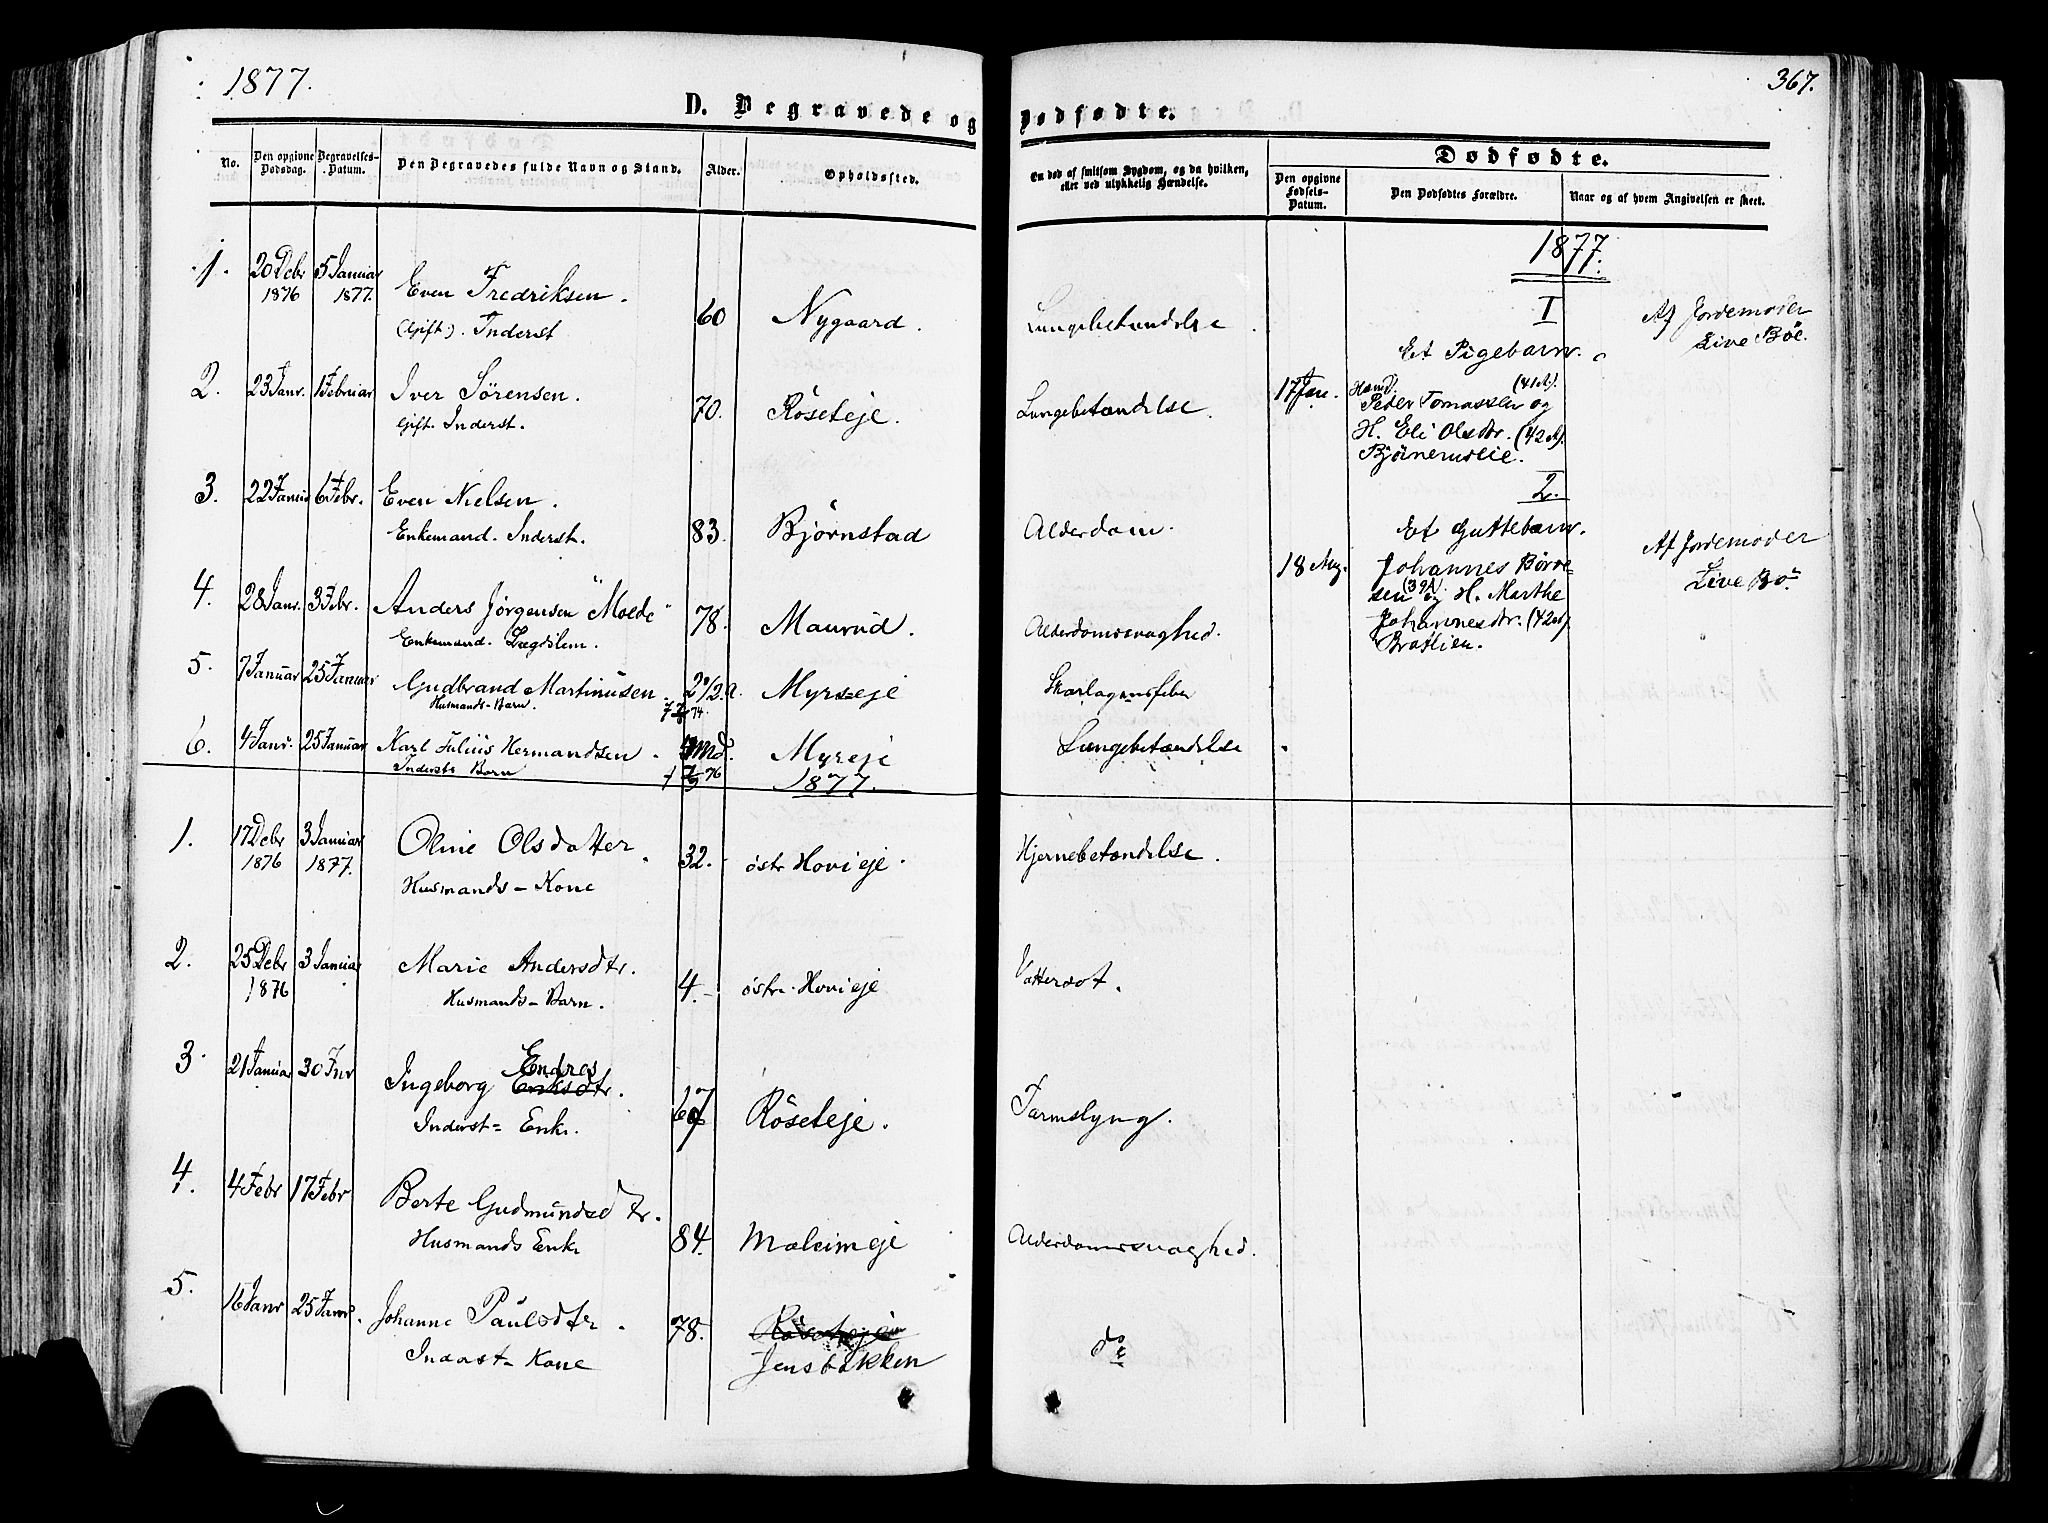 1877.
367.
D. Begravede og Dødfødte.
No.
Den opgivne Dødsdag.
Begravelses-Datum.
Den Begravedes fulde Navn og Stand.
Alder.
Opholdssted.
En død af smitsom Sygdom, og da hvilken, eller ved ulykkelig Hændelse.
Dødfødte.
Den opgivne Fødsels-Datum.
Den Dødfødtes Forældre.
Naar og af hvem Angivelsen er skeet.
1. 20 Debr 5 Januar
1876 1877. Even Fredriksen.
(Gift.) Inderst 60 Nygaard. Lungebetændelse.
2. 23 Janr. 1 Februar Iver Sørensen.
Gift. Inderst. 70. Röseteje. Lungebetændelse.
3. 22 Januar 6 Febr. Even Nielsen.
Enkemand. Inderst. 83. Bjørnstad Alderdom.
4. 28 Janr. 3 Febr. Anders Jørgensen "Moede"
Enkemand. Lægdslem. 78. Maurud. Alderdomssvaghed.
5. 7 Januar 25 Januar Gudbrand Martinusen 2 1/2 a. Myrseje Skarlagensfeber
Husmands-Barn. 74.
6. 4 Janr. 25 Januar Karl Julius Hermandsen. Md. Myreje Lungebetændelse
Inderste Barn 76
1877.
1877.
I
Et Pigebarn.
Af Jordemoder
Live Böe.
17 Jan. Hsmd. (41 A).
Peder Tomassen og
H. Eli Olsdtr. (42 A).
Björnemslie.
2.
Et Guttebarn.
Af Jordemoder
Live Bö
18 Aug. Johannes Börre-
sen (39 A) og H. Marthe
Johannesdtr. (42 A).
Bratlien.
1. 17 Debr 3 Januar Oline Olsdatter
1876 1877. Husmands-Kone 32. østr Hovieje. Hjernebetændelse.
2. 25 Debr 3 Januar Marie Andersdtr.
1876 Husmands-Barn. 4. østre Hovieje Vattersot.
3. 21 Januar 30 Jnr Endres
Ingeborg Eriksdtr.
Inderst-Enke. 67 Röseteje. Tarmslyng.
4. 4 Febr 17 Febr Berte Gudmundsdtr.
Husmands Enke 84. Moleimeje Alderdomssvaghed.
5. 16 Janr 25 Janr. Johanne Paulsdtr.
Inderst-Kone 78. Röseteje
Jensbakken do